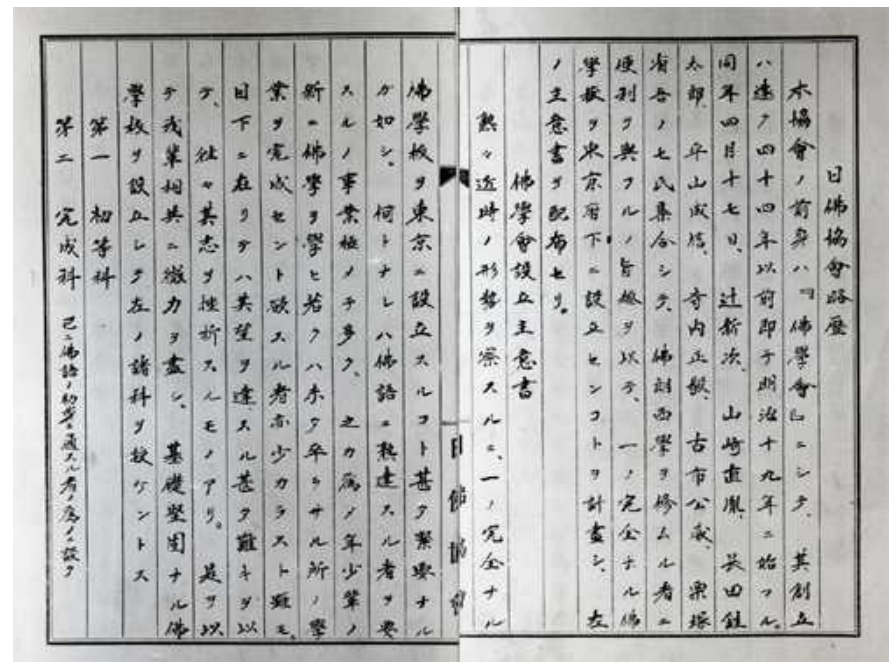 日佛協會略歷
本協會ノ前身ハ『佛學會』ニシテ、其創立
ハ遠ク四十四年以前卽チ明治十九年ニ始マル。
同年四月十七日、辻新次、山崎直胤、長田銈
太郎、平山成信、寺内正毅、古市公威、栗塚
省吾ノ七氏集合シテ、佛朗西學ヲ修ムル者ニ
便利ヲ與フルノ旨趣ヲ以テ、一ノ完全ナル佛
學校ヲ東京府下ニ設立センコトヲ計畫シ、左
ノ主意書ヲ配布セリ。
佛學會設立主意書
熟々近時ノ形勢ヲ察スルニ、一ノ完全ナル
佛學校ヲ東京ニ設立スルコト甚タ緊要ナル
カ如シ。何トナレハ佛語ニ熟達スル者ヲ要
スルノ事業極メテ多ク、之カ爲メ年少輩ノ
新ニ佛學ヲ學ヒ若クハ未タ卒ラサル所ノ學
業ヲ完成セント欲スル者亦少カラスト雖モ、
目下ニ在リテハ其望ヲ達スル甚タ難キヲ以
テ、往々其志ヲ挫折スルモノアリ。是ヲ以
テ我輩相共ニ微力ヲ盡シ、基礎堅固ナル佛
學校ヲ設立シテ左ノ諸科ヲ授ケントス
第一 初等科
第二 完成科 已ニ佛語ノ初學ニ通スル者ノ爲メニ設ク
日佛協會